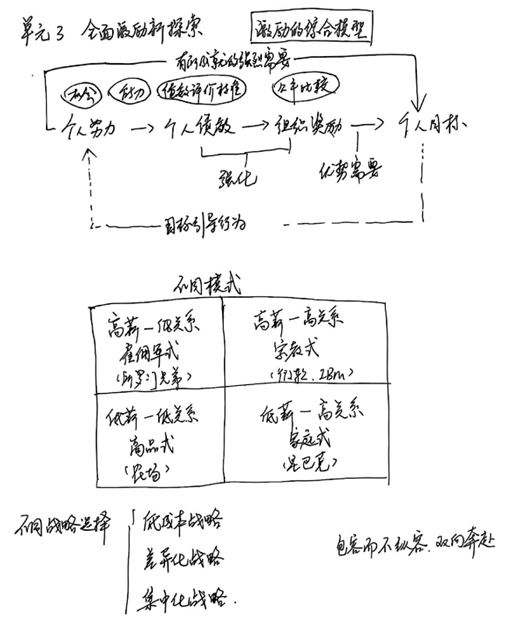 单元3 全面激励新探索
激励的综合模型
有所成就的强烈需要
机会 能力 绩效评价标准 公平比较
个人努力 → 个人绩效 → 组织奖励 → 个人目标
强化 优势需要
目标引导行为
不同模式
高薪—低关系
雇佣军式
(所罗门兄弟)
高薪—高关系
宗教式
(微软、IBM)
低薪—低关系
商品式
(农场)
低薪—高关系
家庭式
(星巴克)
不同战略选择
低成本战略
差异化战略
集中化战略.
包容而不纵容、双向奔赴